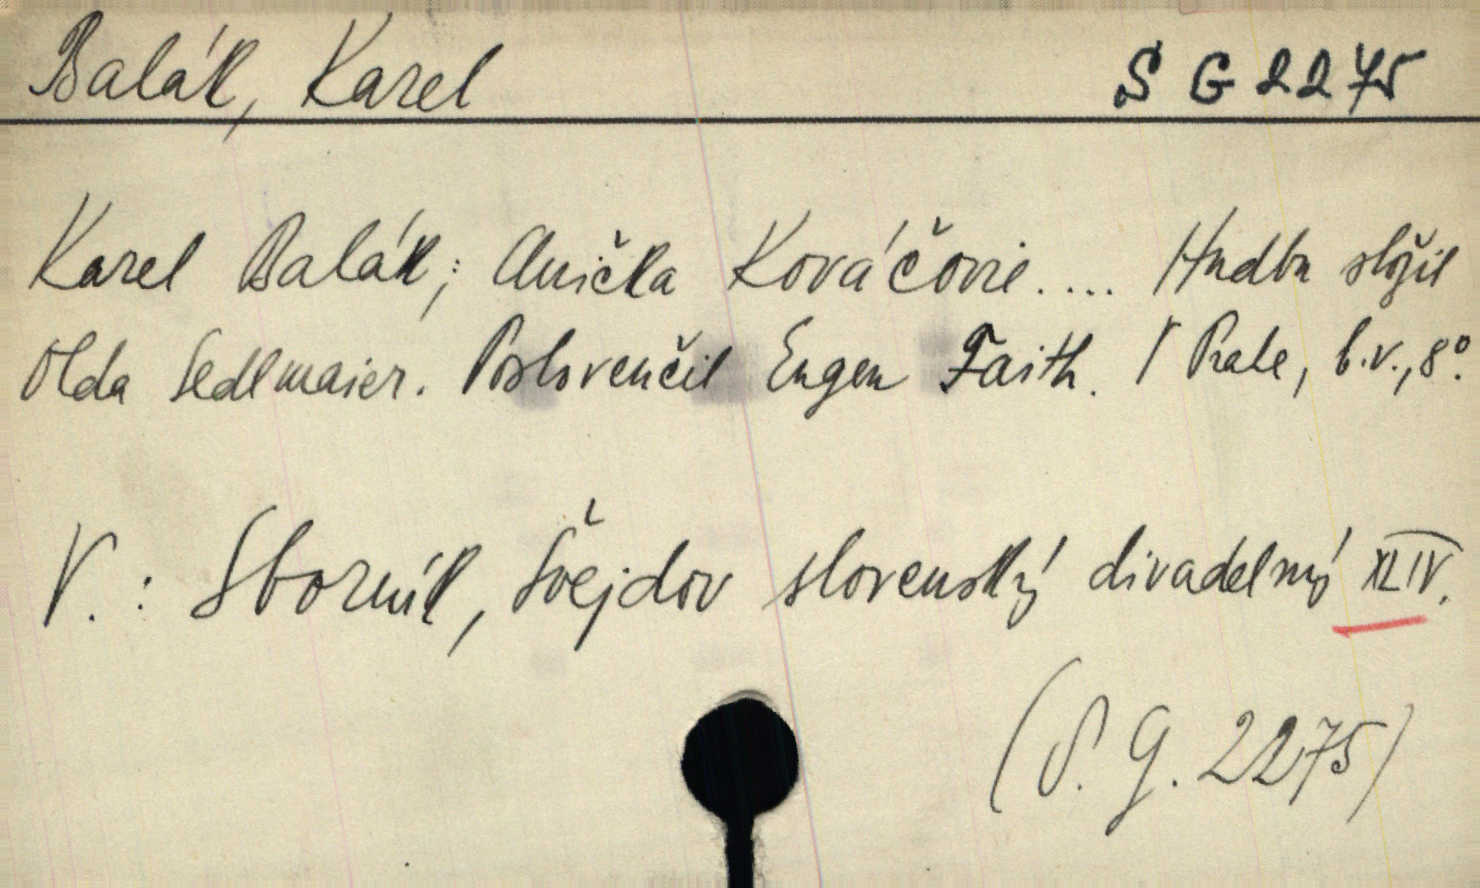 Balák, Karel S G 2275
Karel Balák; Anička Kováčovie.... Hudbu složil
Olda Sedlmaier. Poslovenčil Eugen Faith. V Praze, b.v., 8°.
V.: Sborník, Švejdov slovenský divadelný XLIV.
(S. G. 2275)